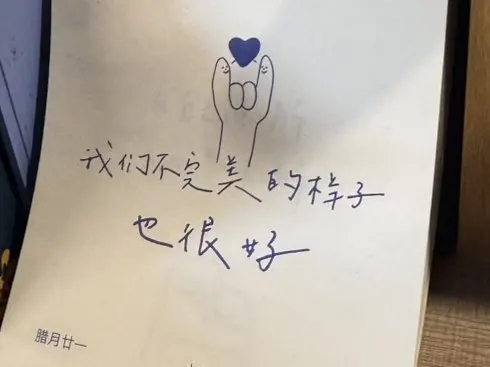 我们不完美的样子
也很好
腊月廿一